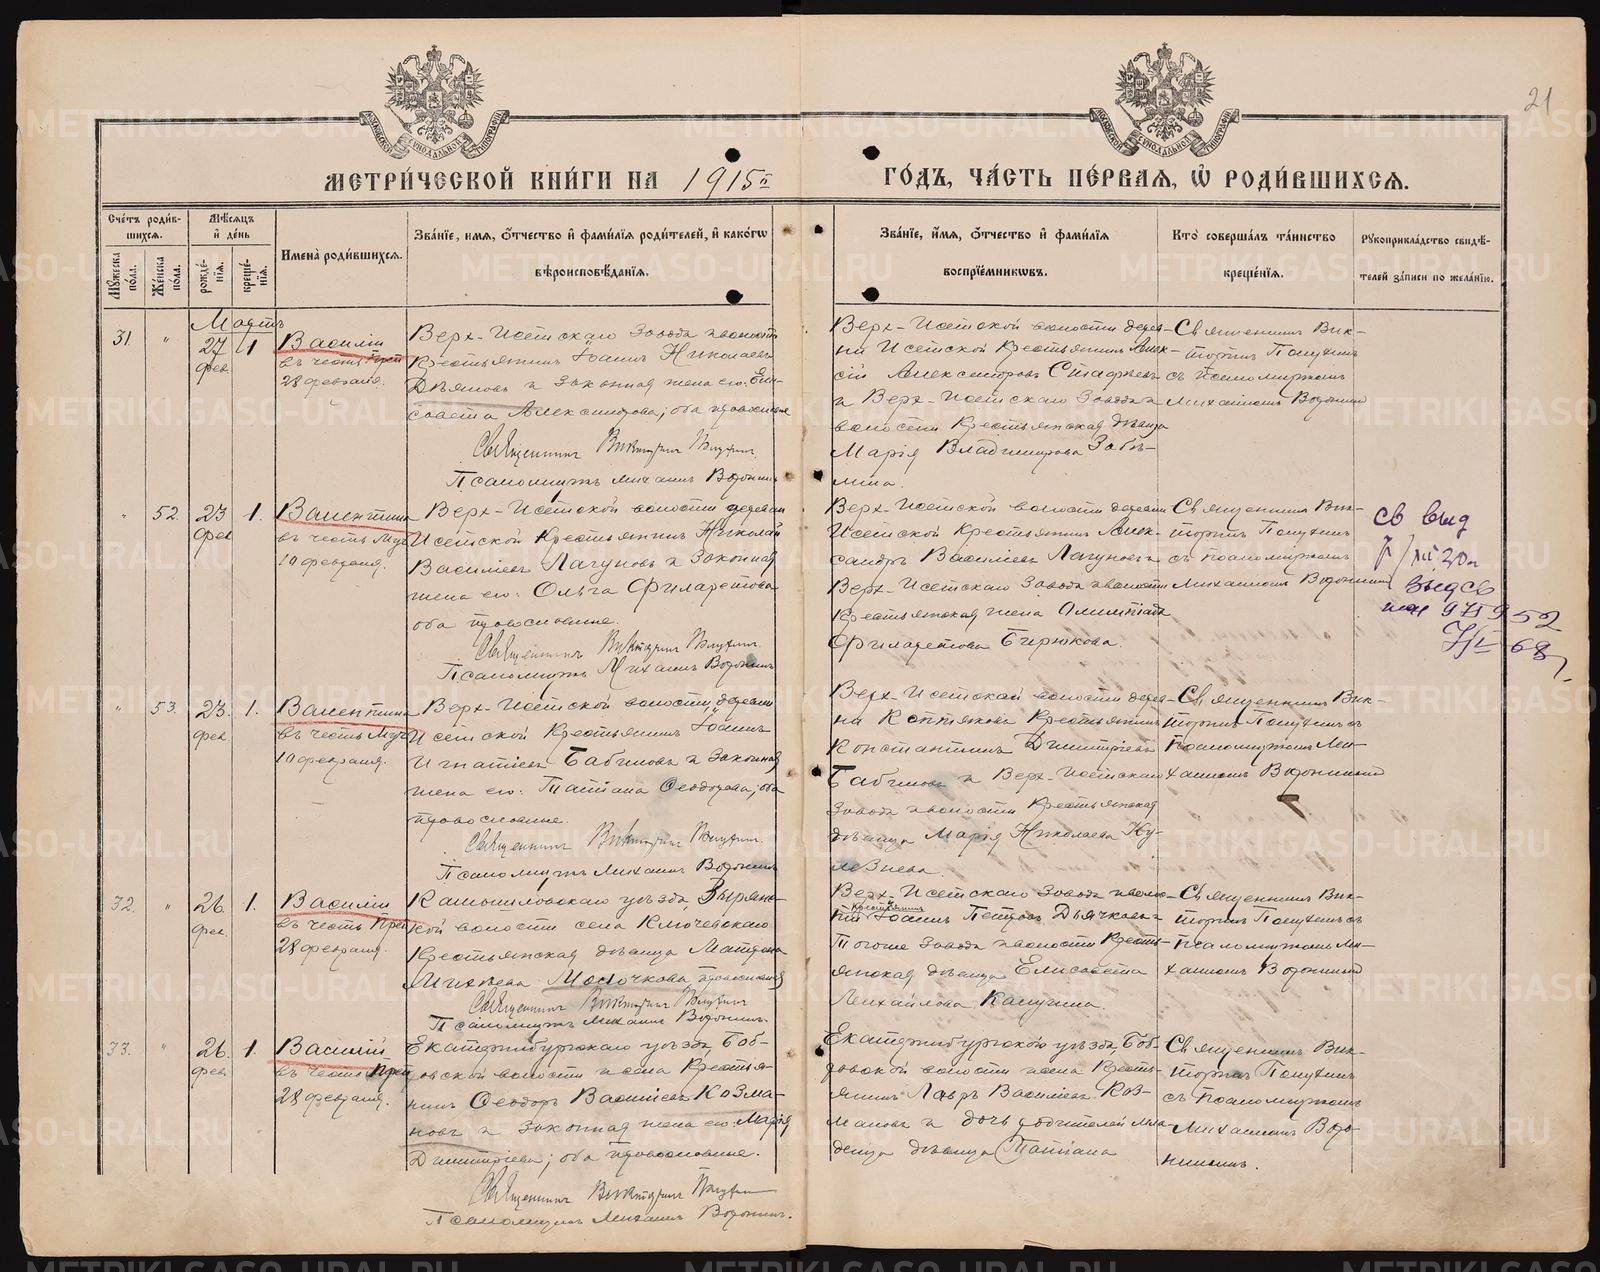 21
МОСКОВСКОЙ СѴНОДАЛЬНОЙ ТИПОГРАФІИ
МОСКОВСКОЙ СѴНОДАЛЬНОЙ ТИПОГРАФІИ
МЕТРИ́ЧЕСКОЙ КНИ́ГИ НА 1915й
ГО́ДЪ, ЧА́СТЬ ПЕ́РВАѦ, Ѡ҆ РОДИ́ВШИХСѦ.
Сче́тъ роди́вшихсѧ.
Мꙋ́жеска по́ла.
Же́нска по́ла.
Мѣ́сѧцъ и҆ де́нь
рожде́нїѧ.
креще́нїѧ.
И҆мена̀ роди́вшихсѧ.
Зва́нїе, и҆́мѧ, ѻ҆́тчество и҆ фами́лїѧ роди́телей, и҆ како́гѡ вѣроисповѣ́данїѧ.
Зва́нїе, и҆́мѧ, ѻ҆́тчество и҆ фами́лїѧ воспрїе́мникѡвъ.
Кто̀ соверша́лъ та́инство креще́нїѧ.
Рꙋкоприкла́дство свидѣ́телей за́писи по жела́нїю.
Мартъ
31. " 27 фев. 1
Василій
въ честь Преп
28 февраля.
Верх-Исетскаго Завода и волости
Крестьянинъ Іоаннъ Николаевъ
и Законная жена его: Ели-
савета Александрова; оба православные
Священникъ Викторинъ
Псаломщикъ Михаилъ Воронинъ
Верх-Исетской волости дерев-
ни Исетской Крестьянинъ Алек-
сій Александровъ
и Верх-Исетскаго Завода и
волости Крестьянская дѣвица
Марія Владимирова
Священникъ Вик-
торинъ
съ псаломщикомъ
Михаиломъ Воронинымъ
" 52. 23 фев 1.
Валентина
въ честь Муч
10 февраля.
Верх-Исетской волости деревни
Исетской Крестьянинъ Николай
Василіевъ Лагуновъ и Законная
жена его: Ольга Филаретова
оба православные.
Священникъ Викторинъ
Псаломщикъ Михаилъ Воронинъ
Верх-Исетской волости деревни
Исетской Крестьянинъ Алек-
сандръ Василіевъ Лагуновъ и
Верх-Исетскаго Завода и волости
Крестьянская жена Олимпіада
Филаретова Бирюкова.
Священникъ Вик-
торинъ
съ псаломщикомъ
Михаиломъ Воронинымъ
св выд
" 53. 23. фев. 1.
Валентина
въ честь Муч
10 февраля.
Верх-Исетской волости, деревни
Исетской Крестьянинъ Іоаннъ
Игнатіевъ Бабиновъ и Законная
жена его: Татіана Ѳеодорова; оба
православные.
Священникъ Викторинъ
Псаломщикъ Михаилъ Воронинъ
Верх-Исетской волости дерев-
ни Коптякова Крестьянинъ
Константинъ Димитріевъ
Бабиновъ и Верх-Исетскаго
Завода и волости Крестьянская
дѣвица Марія Николаева Ку-
Священникъ Вик-
торинъ
Псаломщикомъ Ми-
хаиломъ Воронинымъ
32. " 26. фев. 1.
Василій
въ честь Преп
28 февраля.
Камышловскаго уѣзда, Зырянс-
кой волости села Ключевскаго
Крестьянская дѣвица Матрона
Михеева Молочкова, православная
Священникъ Викторинъ
Псаломщикъ Михаилъ Воронинъ.
Верх-Исетскаго Завода и волос-
ти Крестьянинъ Іоаннъ Петровъ Дьячковъ и
Тогоже Завода и волости Кресть-
янская дѣвица Елисавета
Михайлова Калугина.
Священникъ Вик-
торинъ
псаломщикомъ Ми-
хаиломъ Воронинымъ
33. " 26. фев 1.
Василій
въ честь Преп
28 февраля.
Екатеринбургскаго уѣзда, Боб-
ровской волости и села Крестья-
нинъ Ѳеодоръ Василіевъ Козма-
новъ и Законная жена его: Марія
Димитріева; оба православные.
Священникъ Викторинъ
Псаломщикъ Михаилъ Воронинъ.
Екатеринбургскаго уѣзда, Боб-
ровской волости и села Кресть-
янинъ Лавръ Василіевъ Коз-
мановъ и дочь родителей мла-
денца дѣвица Татіана
Священникъ Вик-
торинъ
съ Псаломщикомъ
Михаиломъ Воро-
нинымъ.
METRIKI.GASO-URAL.RU